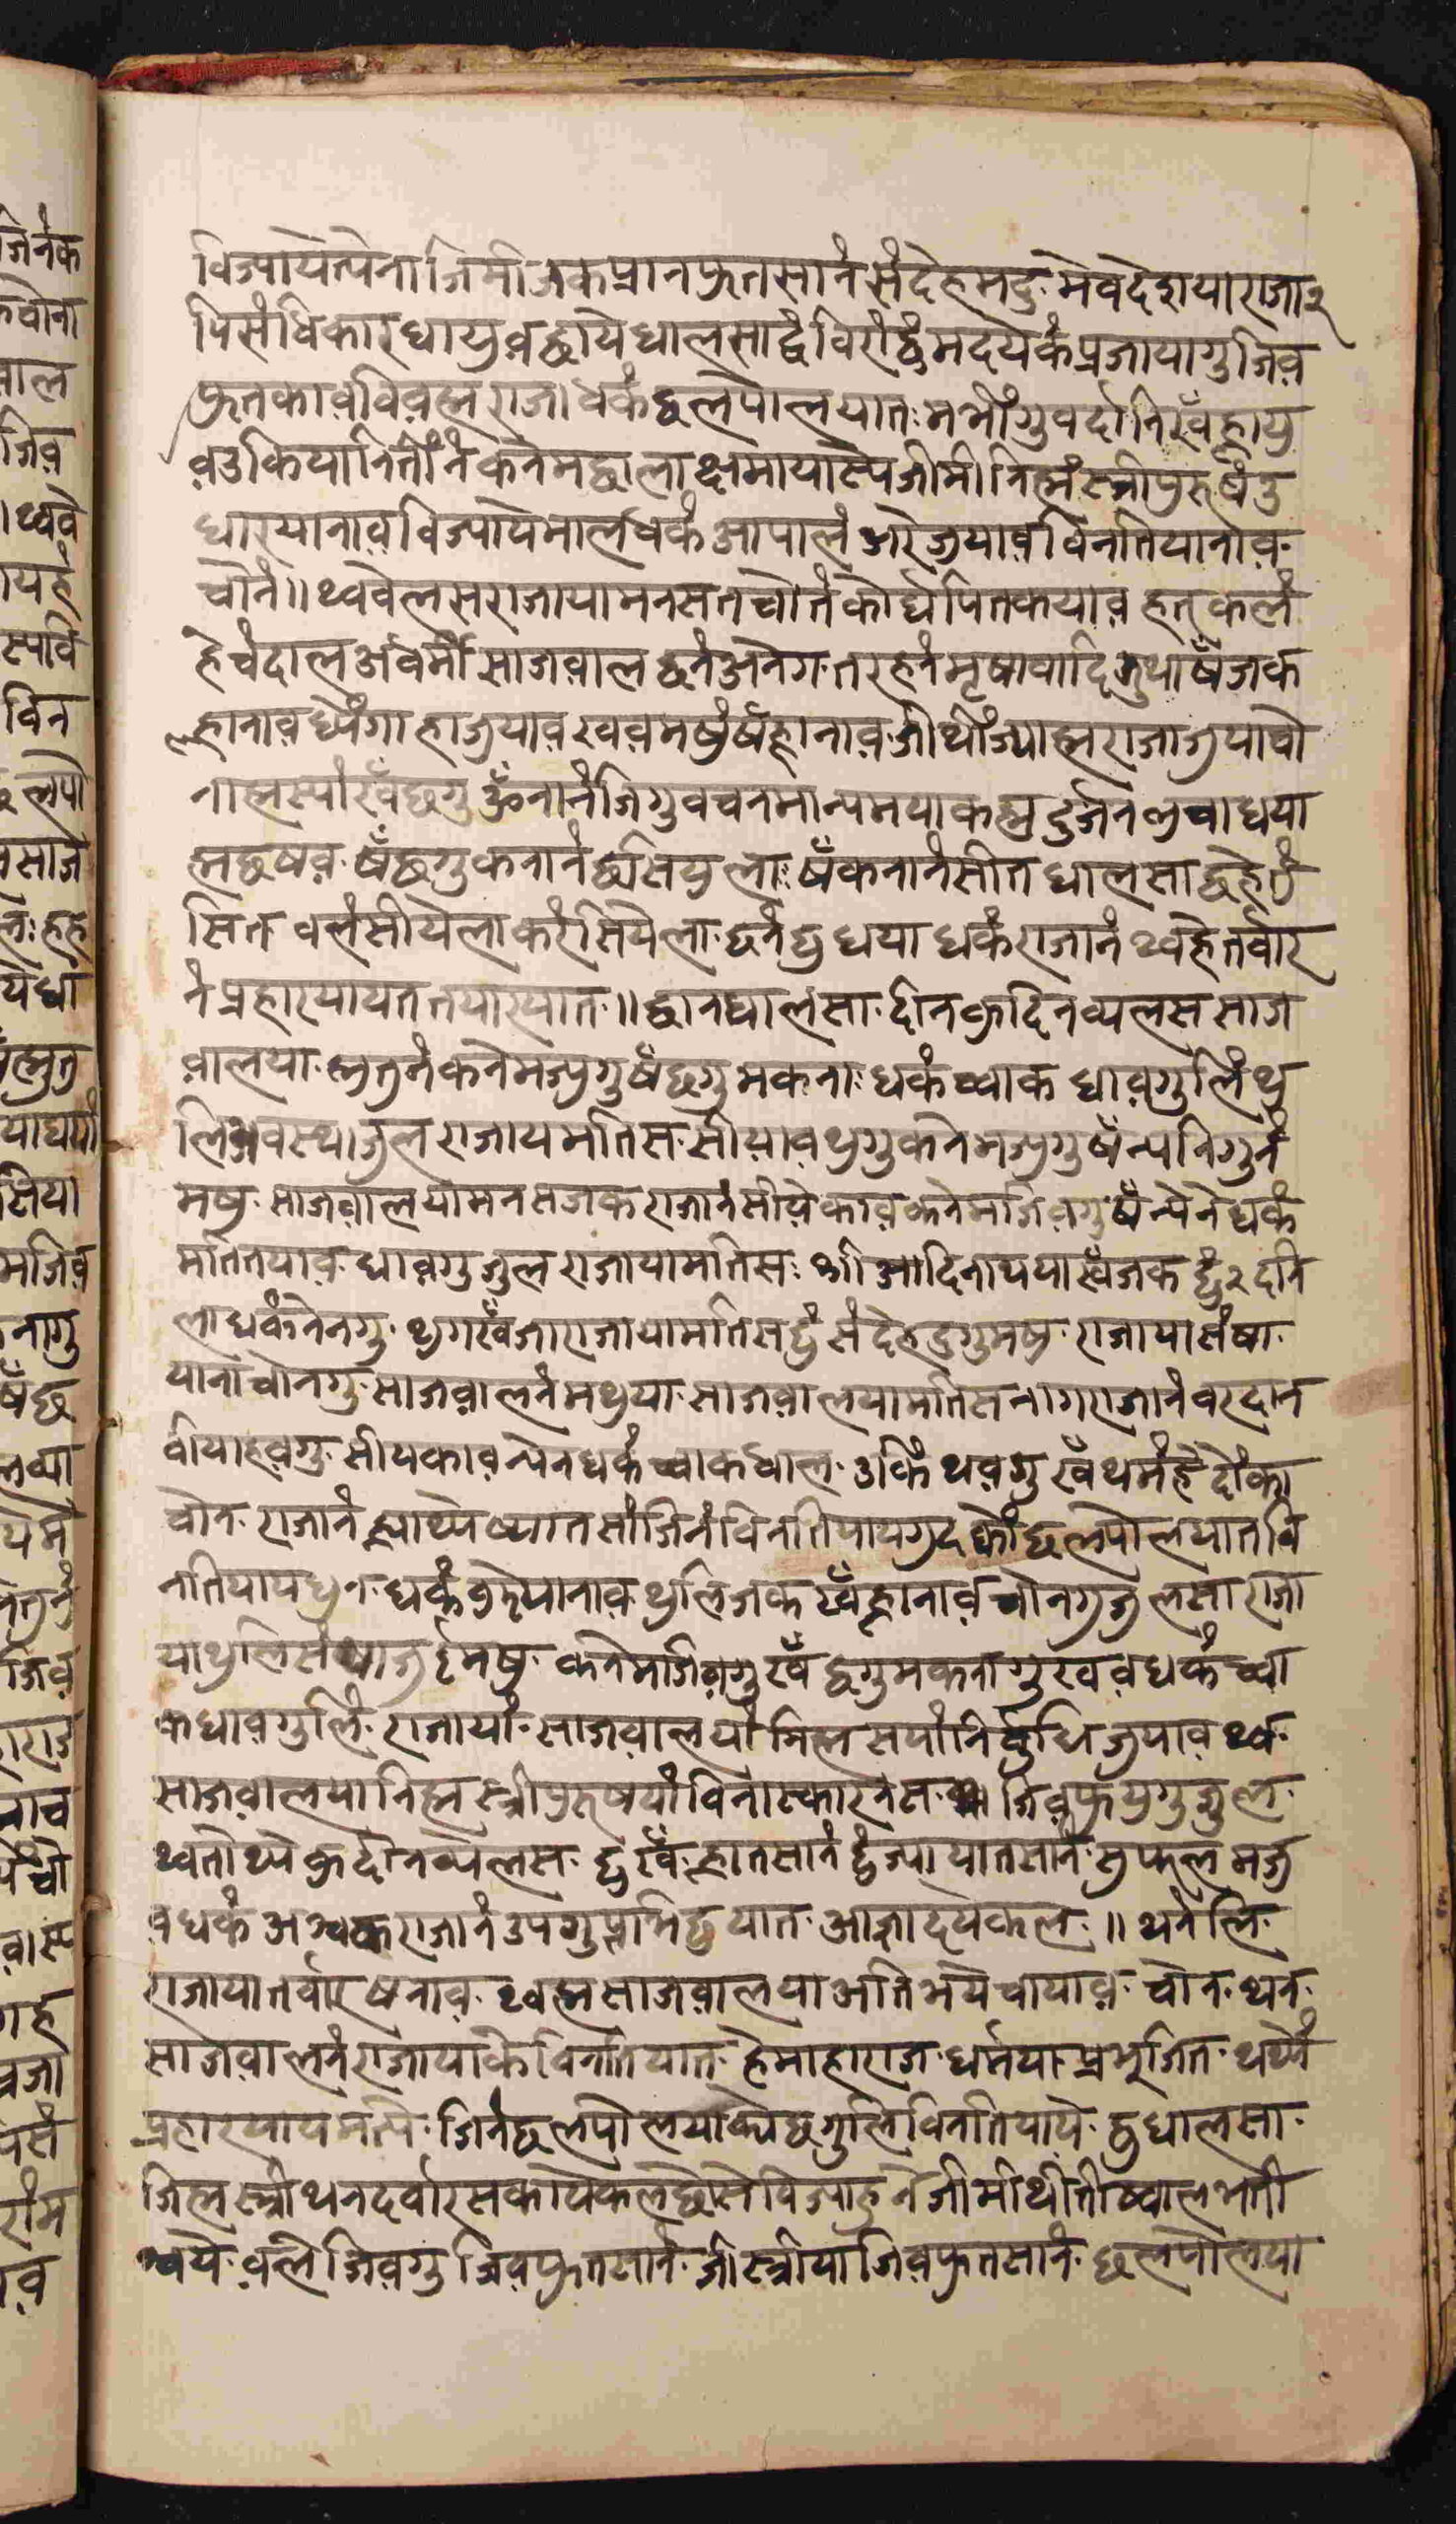 विज्यायेत्येना जिमीउकप्रानफुतसानं संदेहमदु. मेवदेशयाराजा२
पिसंधिकारधायुवछायेधालसाद्वंविरांद्वुंमदयेकंप्रजायागुजिव
फुतकावविवह्मराजाधकंछलपोलयात. मभींगुवर्दानिखँहायु
वउकियानितींनंकनेमछाला क्षमायास्येजीमीनिह्मंस्त्रीपुरुषंउ
धारयानावविज्यायेमालधकंआपालंअरेजुयावविनतियानाव.
चोनं॥ थ्ववेलसराजायामनसतचोतंक्रोर्धपितकयावहतकलं
हेचंदालअधर्मीसाजवालछनंअनेगतरहनंमृषावादिजुयाखँजक
ह्लानावध्येंगाहाजुयावखवमखुखँह्लानाव.जीथींज्याह्मराजाजुयाचो
नाह्मस्यांखँछगुङेँनानंजिगुवचनमान्यमयाकह्म दुर्जनलुचाधया
ह्मछखव. खँछगुकनानंछसियुला. खँकनानंसीतधालसाछहेतुं
सित वलंसीयेलाकरंसियेला. छनंधुधया धकंराजानंथ्वहेतर्वार
नंप्रहारयायततयारयात॥ छानधालसा. दीनक्रदिनव्यलससाज
वालया. ह्मुतुनंकनेमज्युगुखँछगुमकना. धकंच्वाक धावगुलिंथु
लिअवस्थाजुल राजायमतिस. सीयावथुगुकनेमज्युगुखँन्यनिगुनं
मखु. साजवालयामनसजकराजानंसीयेकावकनेमजिवगुखँन्येनेधकं
मतितयाव. धावगुजुल राजायामतिस. श्रीआदिनाथयाखँजक छुं२दनि
लाधकंनेनगु. थुगखँजाराजायामतिसछुंसंदेहदुगुमखु. राजायासंखा.
यानाचोनगु. साजवालनंमथुया. साजवालयामतिसनागराजानंवरदान
वीयाहवगु. सीयकावन्येनधकंच्वाकधाल. उकिंथवगुखँथमंहेदोंका
चोन. राजानंह्याथ्येंख्यातसांजिनंविनतियायगुदकोंछलपोलयातवि
नतियायधुन. धकंङेरेयानाव. थुलिजकखँह्लानावचोनगुजुलसाराजा
याथुलिसंखाजुइमखु. कनेमजिवगुखँछगुमकनागुखवधकंच्वा
कधावगुलिं. राजायां. साजवालयां निह्मसयांनिर्बुधिजुयाव थ्व.
साजवालयानिह्मस्त्रीपुरुषयांविनासकारनस. जिवफुयगुजुल.
थ्वतोथ्यंक्रदीनव्येलस. छुखँह्लातसानंछुंज्यायातसानंसुफलमजु
वधकं अश्वकराजानंउपगुप्तभिक्षुयात. आज्ञादयेकल.॥ थनंलि.
राजायातर्वारखनाव. थ्वह्मसाजवालयाअतिभयचायाव. चोन. थन.
साजवालनंराजायाकेविनतियात. हेमाहाराज. धर्मयाप्रभुजित. थथ्यें
प्रहारयायमत्ये. जिनंछलपोलयाक्यछगुलिविनतियाये. छुधालसा.
जिह्मस्त्रीथनदर्वारसकायेकलछोसेविज्याहुने जीमीथीतीख्वालभती
स्वये. वले जिवगुजिवफुतसानं. जीस्त्रीयाजिवफुतसानं. छलपोलया